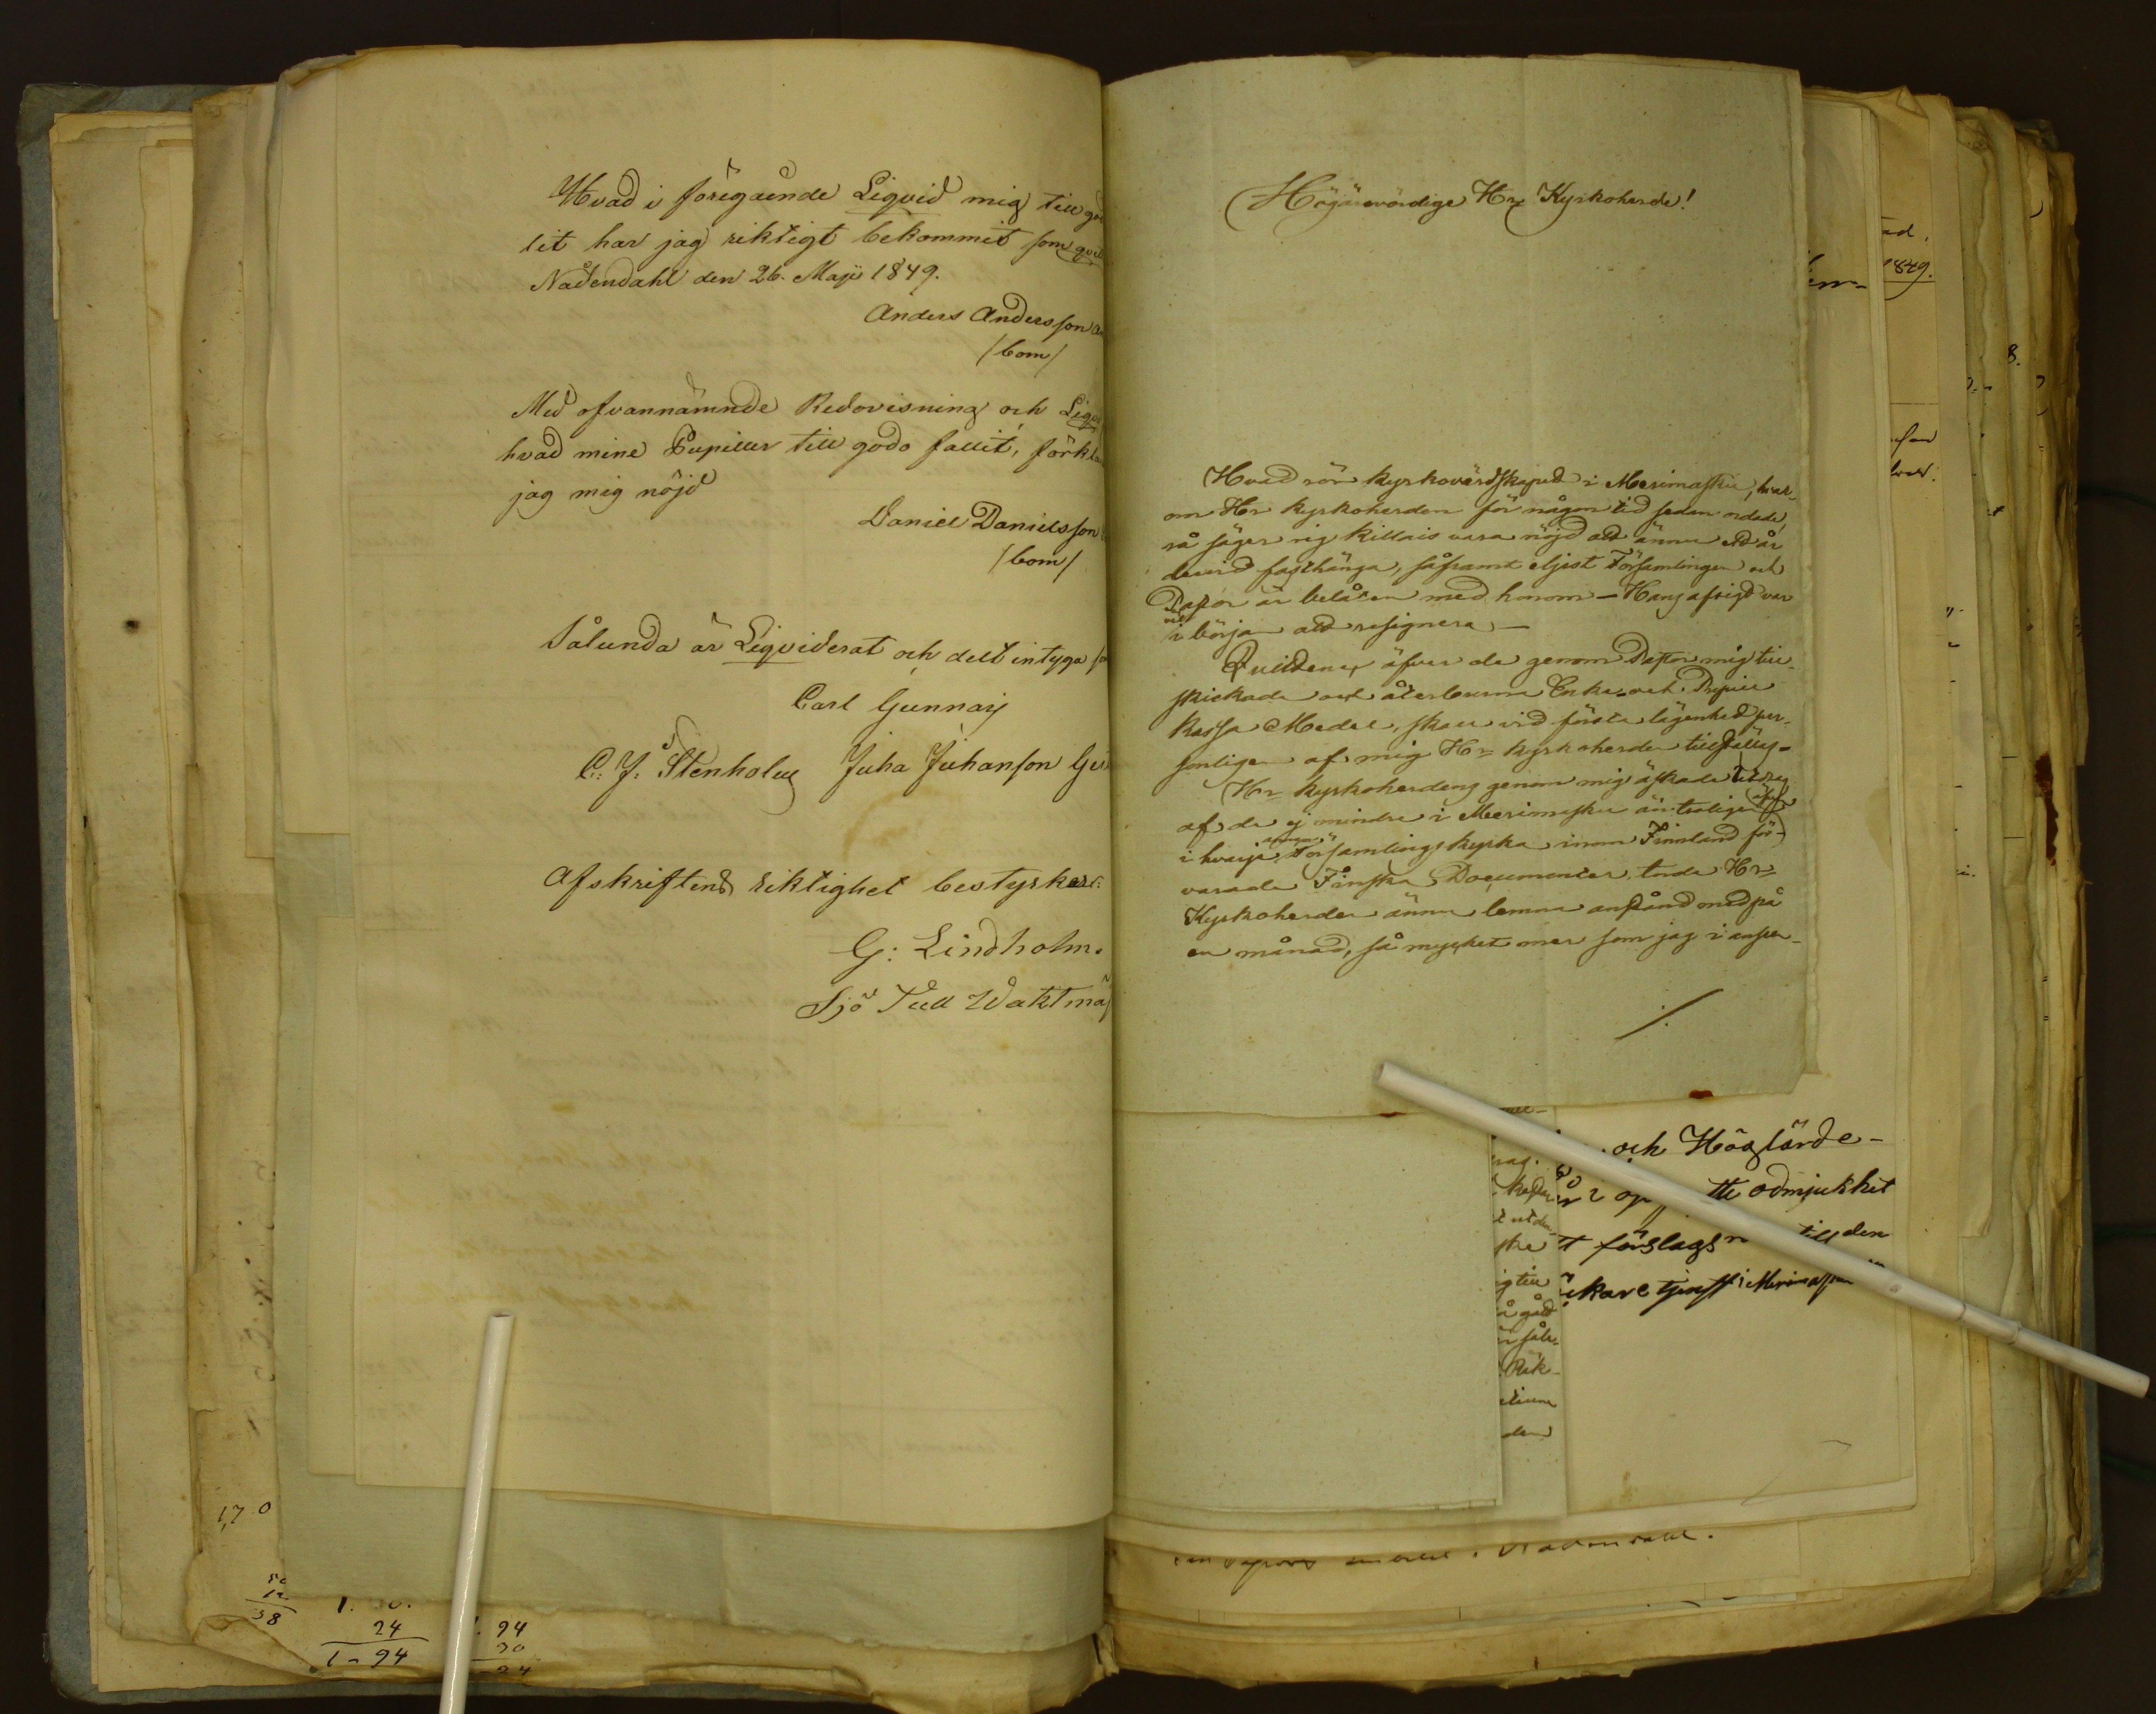 Hvad i föregående Liqvid mig till god
lit har jag riktigt bekommit som qvit
Nådendahl den 26. Maji 1849.
Anders Andersson
/bom/
Med ofvannämnde Redovisning och Liqv
hvad mine Pupiller till godo fallit, förkla
jag mig nöjd
Daniel Danielsson
/bom/
Sålunda är Liqviderat och dett intyga
Carl Gunnari
C: J: Stenholm Juha Juhansson
Afskriftens riktighet bestyrker:
G: Lindholm.
Sjö Tull Vaktmä
1,70
12
38
24
1-94
94
Högärevördige Hr Kyrkoherde!
Hvad rör kyrkovärdskapet i Merimasku, hvar-
om Hr Kyrkoherden för någon tid sedan ordade,
så säger sig Killais vara nöjd att ännu ett år
dervid fasthänga, såframt eljest Församlingen och
Pastor är belåten med honom – Hans afsigt var
väl
i början att resignera –
Quittener öfver de genom Pastor mig till-
skickade och återburna Enke- och Pupill
Kassa Medel, skall vid första lägenhet per-
sonligen af mig Hr Kyrkoherden tillställas –
Hr Kyrkoherdens genom mig äskade Utdrag
af de ej mindre i Merimasku än troligen
i hvarje Församlings kyrka inom Finnland för-
varade Finska Documenter, torde Hr
Kyrkoherden ännu lemna anstånd med på
en månad, så mycket mer som jag i anse-
./.
och Höglärde-
ödmjukhet
förslags till den
kare tjenst i Merimasku
ad.
1849.
8.